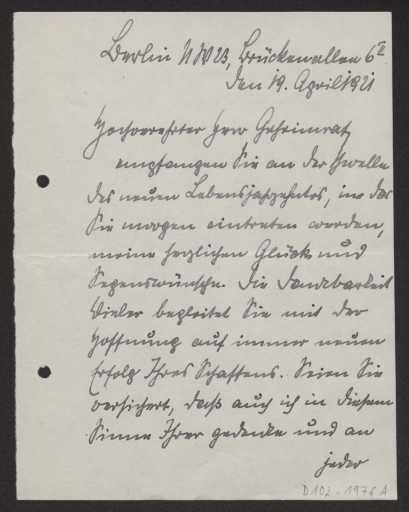 Berlin NW 23, Brückenallee 6 II
den 19. April 1921
Hochverehrter Herr Geheimrat,
empfangen Sie an der Schwelle
des neuen Lebensjahrzehntes, in das
Sie morgen eintreten werden,
meine herzlichen Glück- und
Segenswünsche. Die Dankbarkeit
Vieler begleitet Sie mit der
Hoffnung auf immer neuen
Erfolg Ihres Schaffens. Seien Sie
versichert, daß auch ich in diesem
Sinne Ihrer gedenke und an
jeder
D102-1976 A